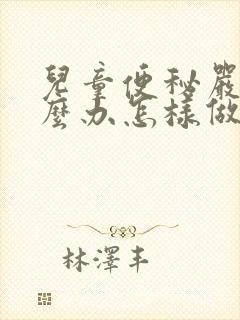 兒童便秘嚴
麼办怎樣做
林澤丰